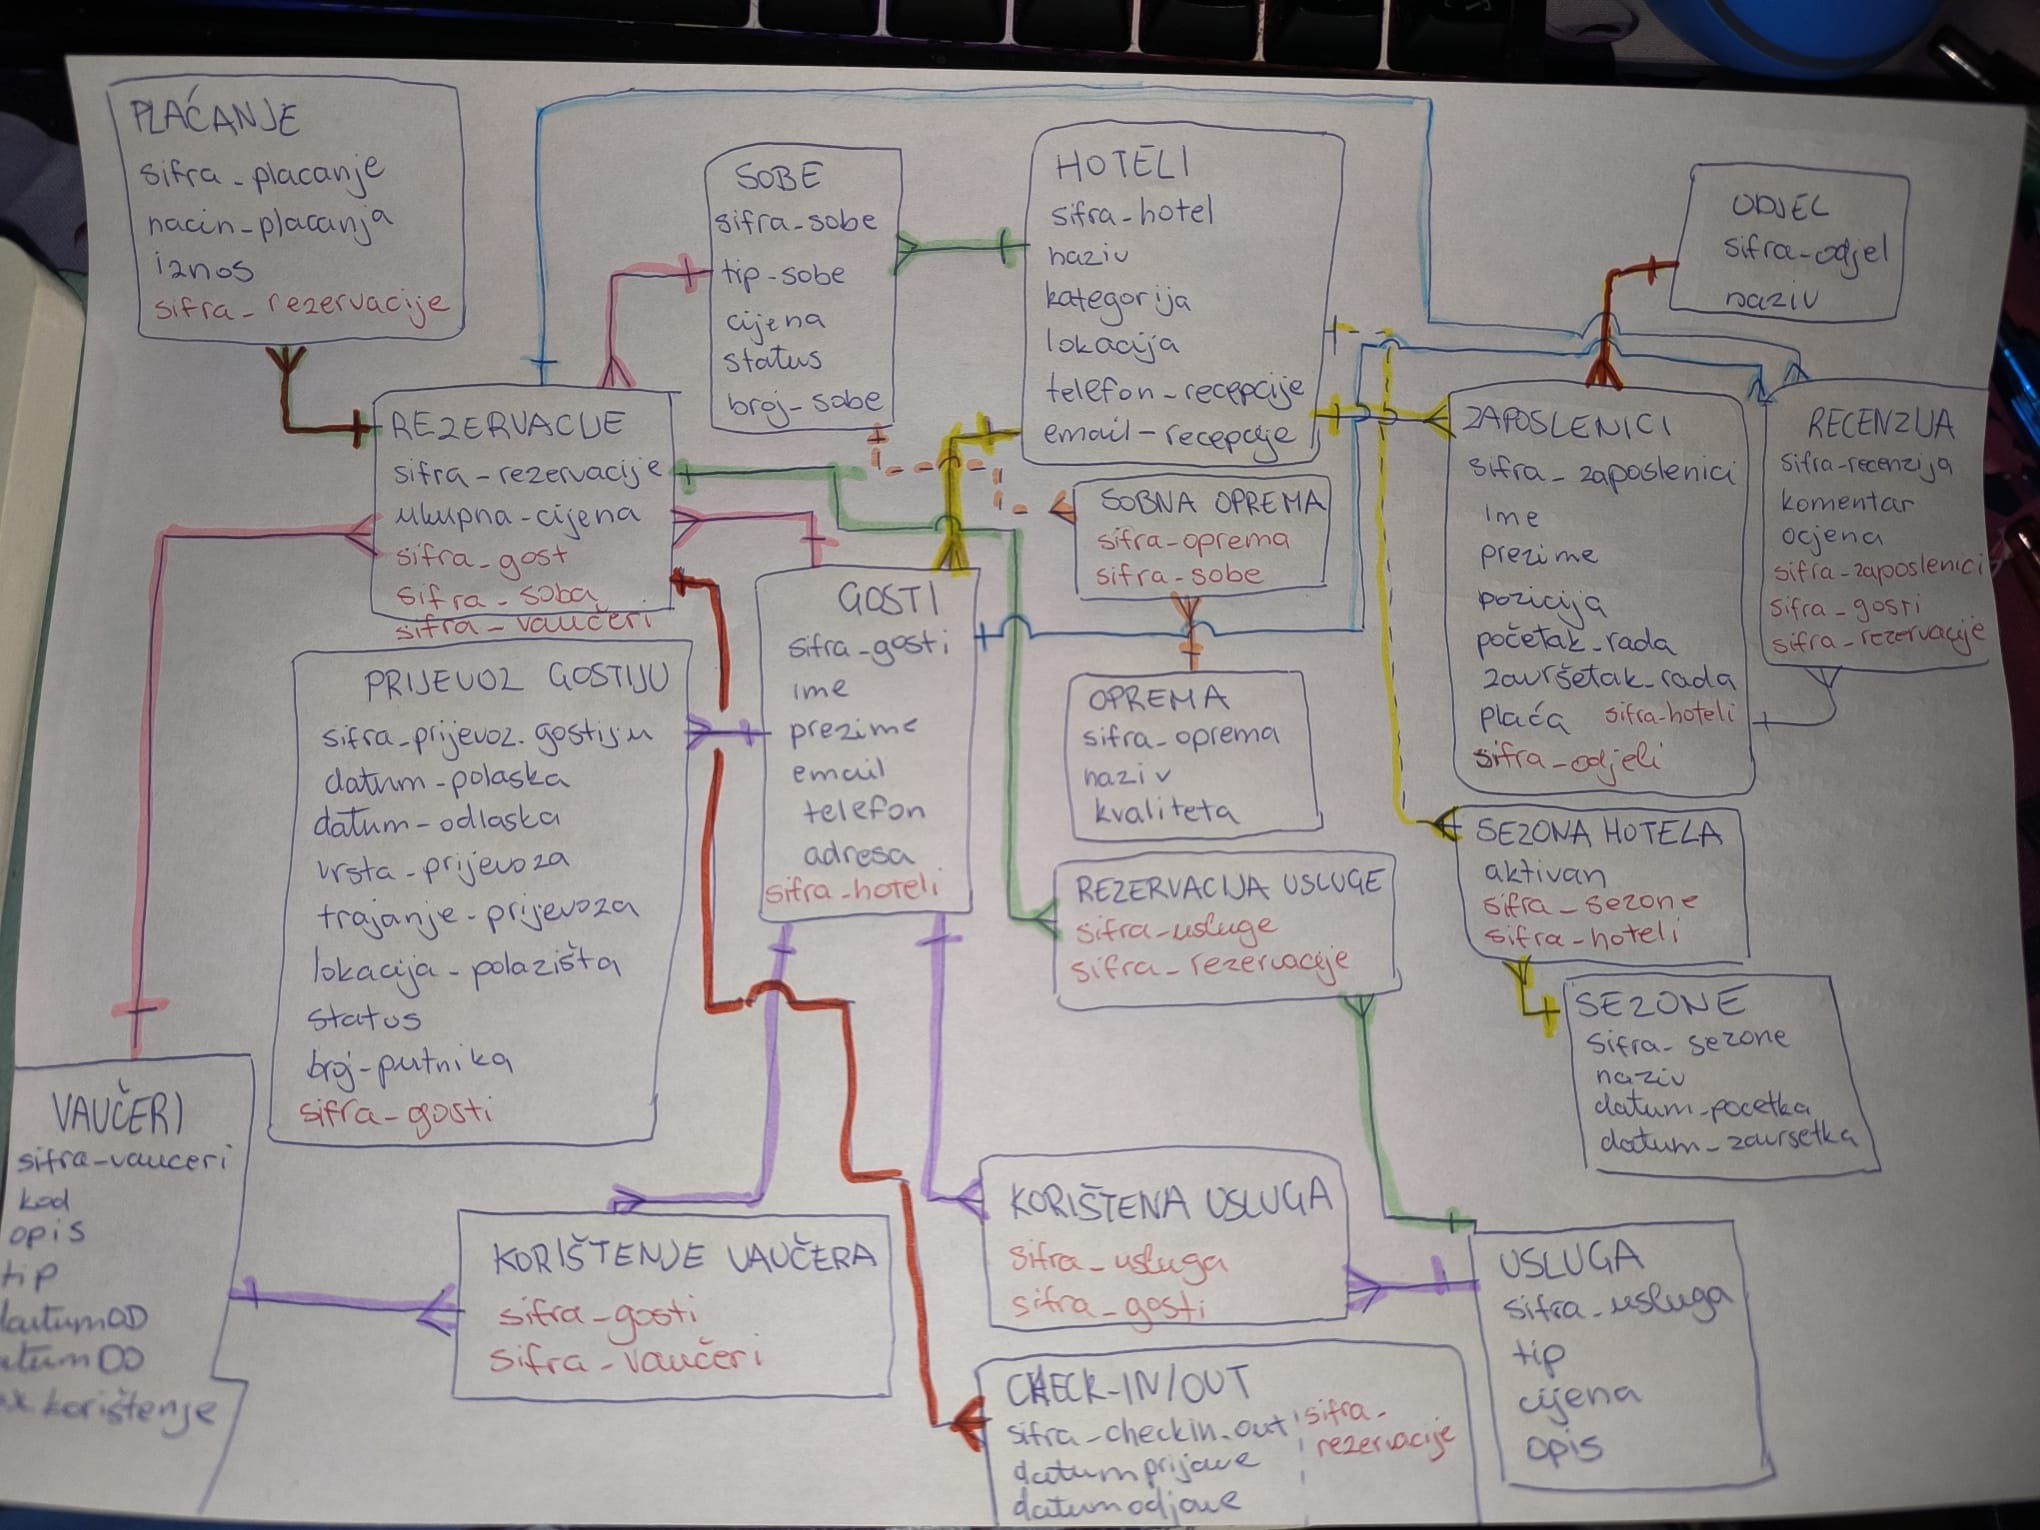 PLAĆANJE
sifra_placanje
nacin_placanja
iznos
sifra_rezervacije
SOBE
sifra_sobe
tip_sobe
cijena
status
broj_sobe
HOTELI
sifra_hotel
naziv
kategorija
lokacija
telefon_recepcije
email_recepcije
ODJEL
sifra_odjel
naziv
REZERVACIJE
sifra_rezervacije
ukupna_cijena
sifra_gost
sifra_soba
sifra_vaučeri
SOBNA OPREMA
sifra_oprema
sifra_sobe
ZAPOSLENICI
sifra_zaposlenici
ime
prezime
pozicija
početak_rada
završetak_rada
plaća sifra_hoteli
sifra_odjeli
RECENZIJA
sifra_recenzija
komentar
ocjena
sifra_zaposlenici
sifra_gosti
sifra_rezervacije
GOSTI
sifra_gosti
ime
prezime
email
telefon
adresa
sifra_hoteli
PRIJEVOZ GOSTIJU
sifra_prijevoz.gostiju
datum_polaska
datum_odlaska
vrsta_prijevoza
trajanje_prijevoza
lokacija_polazišta
status
broj_putnika
sifra_gosti
OPREMA
sifra_oprema
naziv
kvaliteta
REZERVACIJA USLUGE
sifra_usluge
sifra_rezervacije
SEZONA HOTELA
aktivan
sifra_sezone
sifra_hoteli
SEZONE
sifra_sezone
naziv
datum_pocetka
datum_zavrsetka
VAUČERI
sifra_vauceri
kod
opis
tip
datumOD
atumDO
korištenje
KORIŠTENJE VAUČERA
sifra_gosti
sifra_vaučeri
KORIŠTENA USLUGA
sifra_usluga
sifra_gosti
USLUGA
sifra_usluga
tip
cijena
opis
CHECK-IN/OUT
sifra_checkin_out sifra_
rezervacije
datumprijave
datumodjave